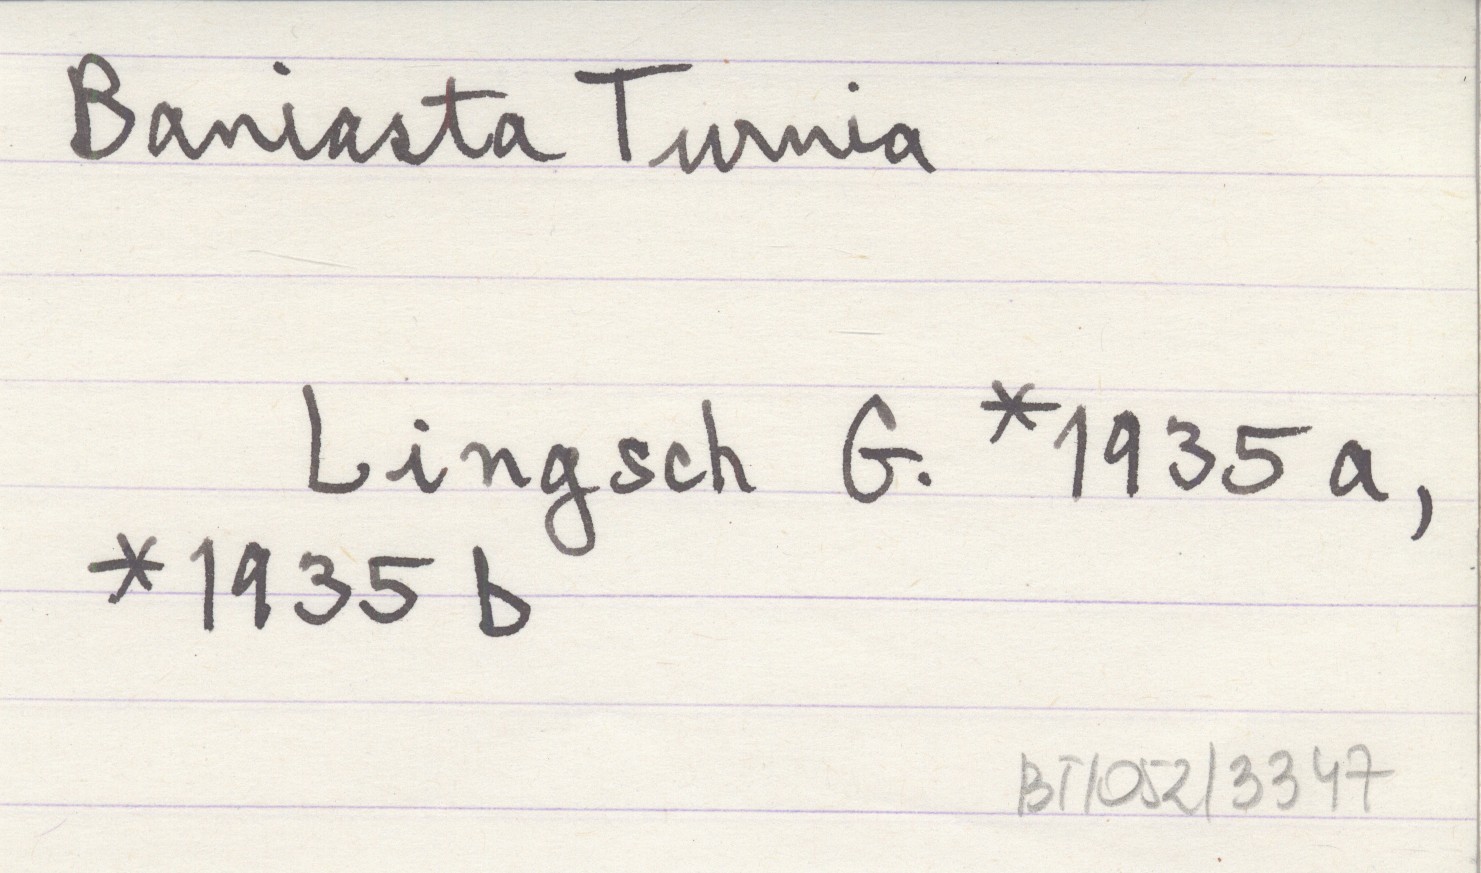 Baniasta Turnia
Lingsch G. *1935 a,
*1935 b
BT/052/3347